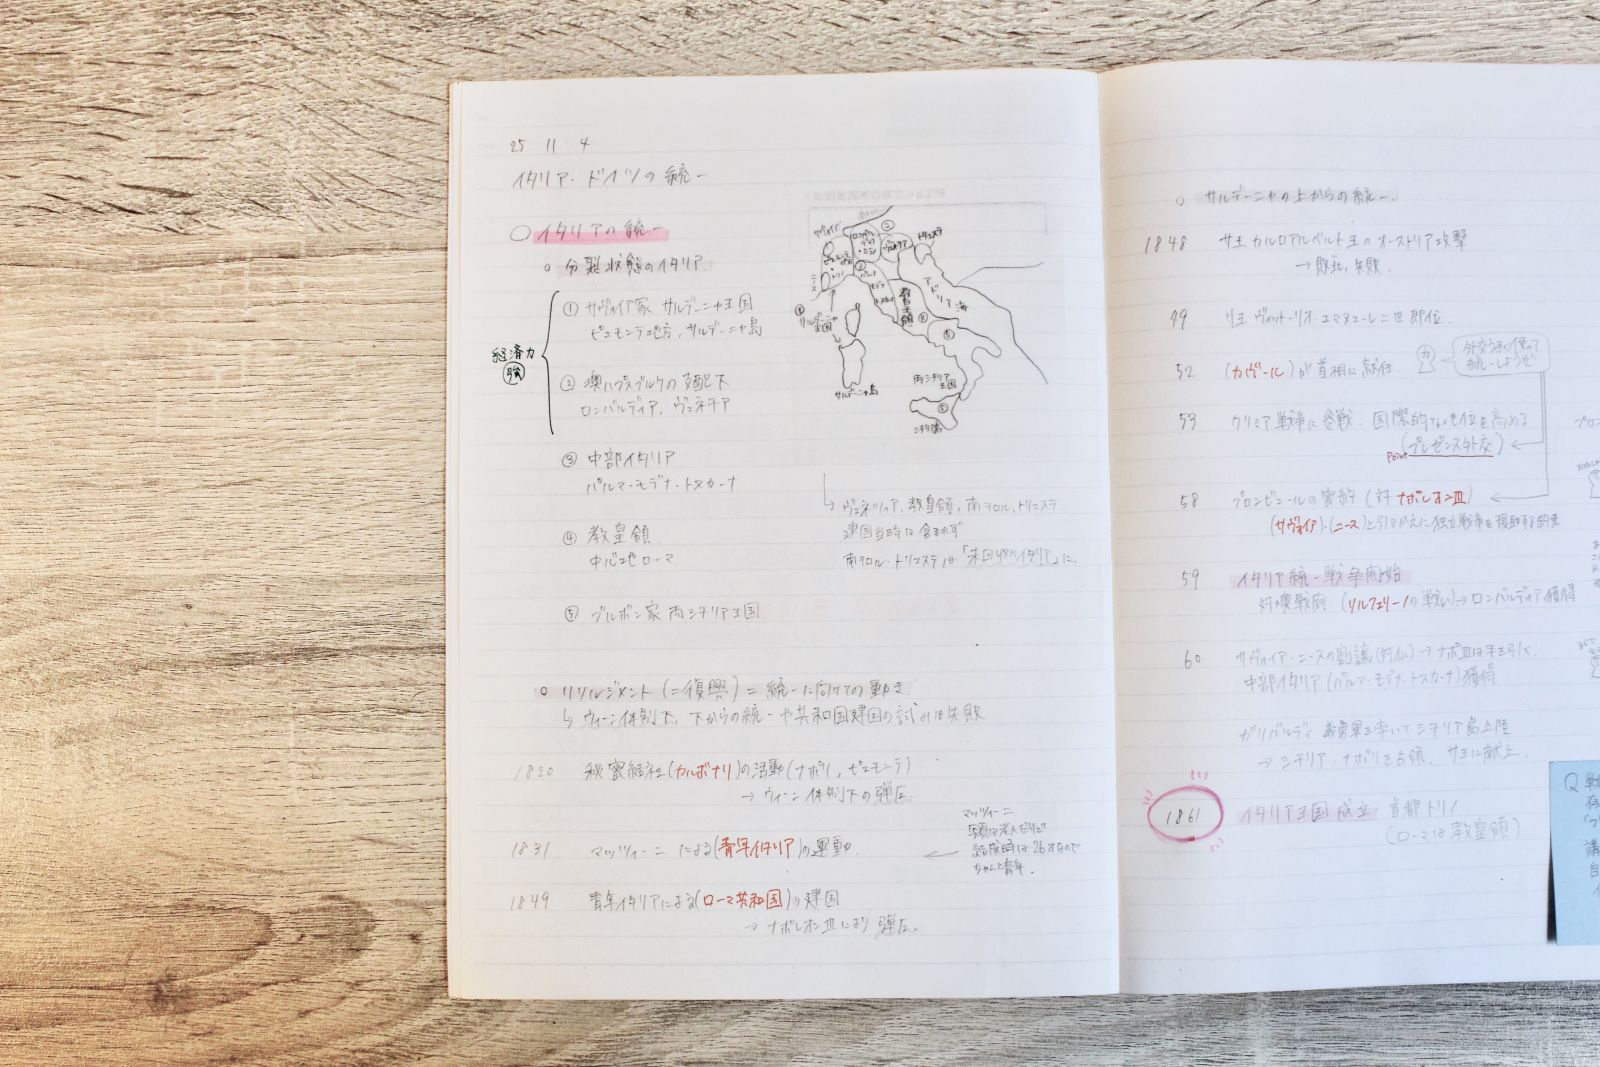 25 11 4
イタリア・ドイツの統一
○ イタリアの統一
○ 分裂状態のイタリア
経済力
強
① サヴォイア家 サルデーニャ王国
ピエモンテ地方, サルデーニャ島
② 墺ハプスブルクの支配下
ロンバルディア, ヴェネチア
③ 中部イタリア
パルマ・モデナ・トスカーナ
④ 教皇領
中心地ローマ
⑤ ブルボン家 両シチリア王国
サヴォイア
トリエステ
ニース
アドリア海
教皇領
サルデーニャ王国
両シチリア王国
サルデーニャ島
シチリア島
→ ヴェネツィア, 教皇領, 南チロル, トリエステ
建国当時は含まれず
南チロル・トリエステは「未回収のイタリア」に
○ リソルジメント (=復興) = 統一に向けての動き
↳ ウィーン体制下, 下からの統一や共和国建国の試みは失敗
1820 秘密結社(カルボナリ)の活動(ナポリ, ピエモンテ)
→ ウィーン体制下の弾圧
1831 マッツィーニ による(青年イタリア)の運動
マッツィーニ
写真は老人だけど
結成時は26才なので
ちゃんと青年.
1849 青年イタリアによる(ローマ共和国)の建国
→ ナポレオンⅢにより 弾圧.
○ サルデーニャの上からの統一
1848 サ王 カルロアルベルト王のオーストリア攻撃
→ 敗北, 失敗.
49 サ王 ヴィットーリオ・エマヌエーレ二世 即位.
52 (カヴール)が首相に就任
カ
外交うまく使って
統一しようぜ
53 クリミア戦争に参戦 国際的な地位を高める
Point (プレゼンス外交)
58 プロンビエールの密約 (対 ナポレオンⅢ)
(サヴォイア)・(ニース)とひきかえに独立戦争を援助する約束
59 イタリア統一戦争開始
対墺戦向 (ソルフェリーノの戦い) → ロンバルディア獲得
60 サヴォイア・ニースの割譲(対仏) → ナポⅢは手を引く.
中部イタリア (パルマ・モデナ・トスカーナ) 獲得
ガリバルディ 義勇軍を率いてシチリア島上陸
→ シチリア・ナポリを占領, サ王に献上.
1861 イタリア王国成立 首都トリノ
(ローマは教皇領)
Q